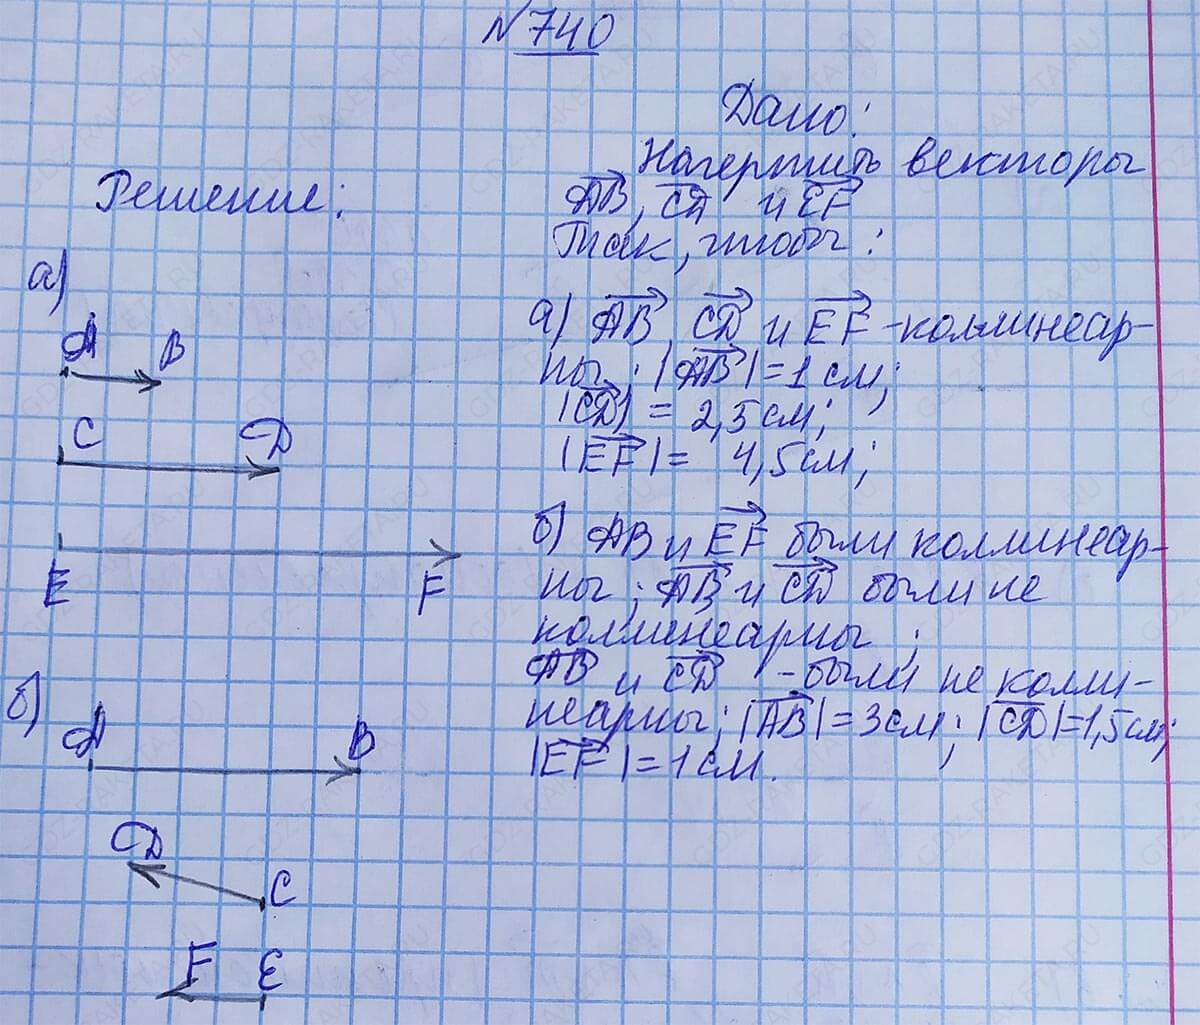 №740
Дано:
Начертить векторы
AB, CD и EF
Так, чтобы:
а) AB, CD и EF - коллинеар-
ны; |AB| = 1 см;
|CD| = 2,5 см;
|EF| = 4,5 см;
б) AB и EF были коллинеар-
ны; AB и CD были не
коллинеарны;
AB и CD - были не колли-
неарны; |AB| = 3 см; |CD| = 1,5 см;
|EF| = 1 см.
Решение:
а)
A B
C D
E F
б)
A B
D
C
F E